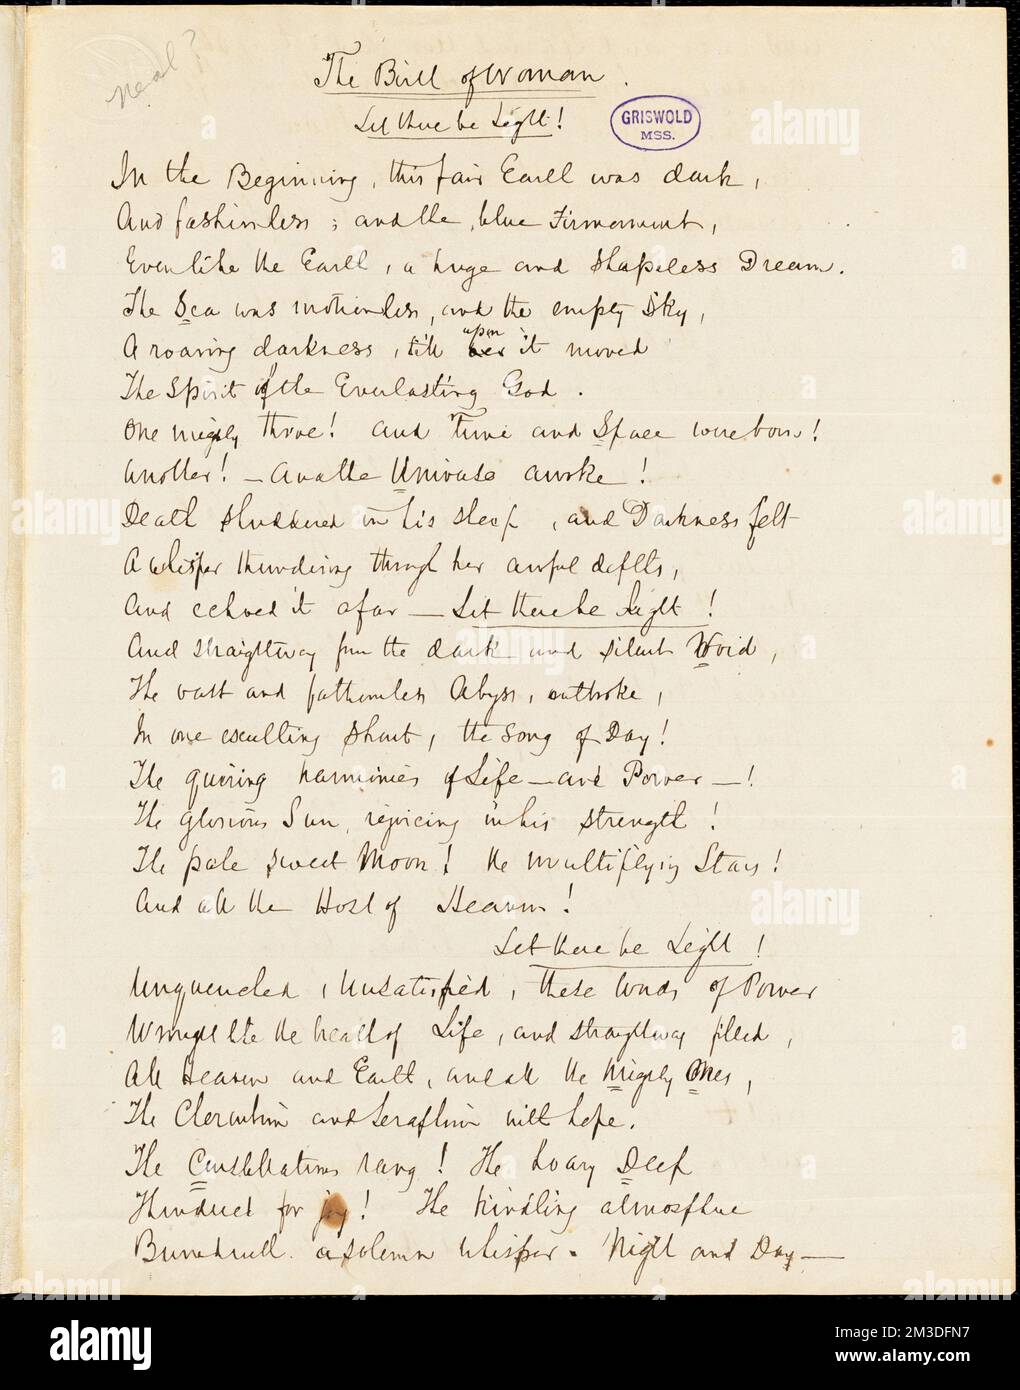 neal?
The Birth of Woman.
Let there be Light!
GRISWOLD
MSS.
In the Beginning, this fair Earth was dark,
And fashionless; and the blue Firmament,
Even like the Earth, a huge and shapeless Dream.
The Sea was motionless, and the empty Sky,
A roaring darkness, till upon it moved
The Spirit of the Everlasting God.
One mighty throe! and Time and Space were born!
Another! — And the Universe awoke!
Death shuddered in his sleep, and Darkness felt
A whisper thundering through her awful depths,
And echoed it afar — Let there be light!
And straightway from the dark and silent Void,
The vast and fathomless Abyss, outbroke,
In one exulting shout, the song of Day!
The quiring harmonies of Life — and Power —!
The glorious Sun, rejoicing in his strength!
The pale sweet Moon! the multiplying Stars!
And all the Host of Heaven!
Let there be Light!
Unquenched, Unsatisfied, these words of Power
Wrought the heart of Life, and straightway filled,
All Heaven and Earth, and all the Mighty Ones,
The Cherubim and Seraphim with hope.
The Constellations rang! The hoary Deep
Thundered for joy! The kindling atmosphere
a solemn whisper. Night and Day —
alamy
Image ID: 2M3DFN7
www.alamy.com